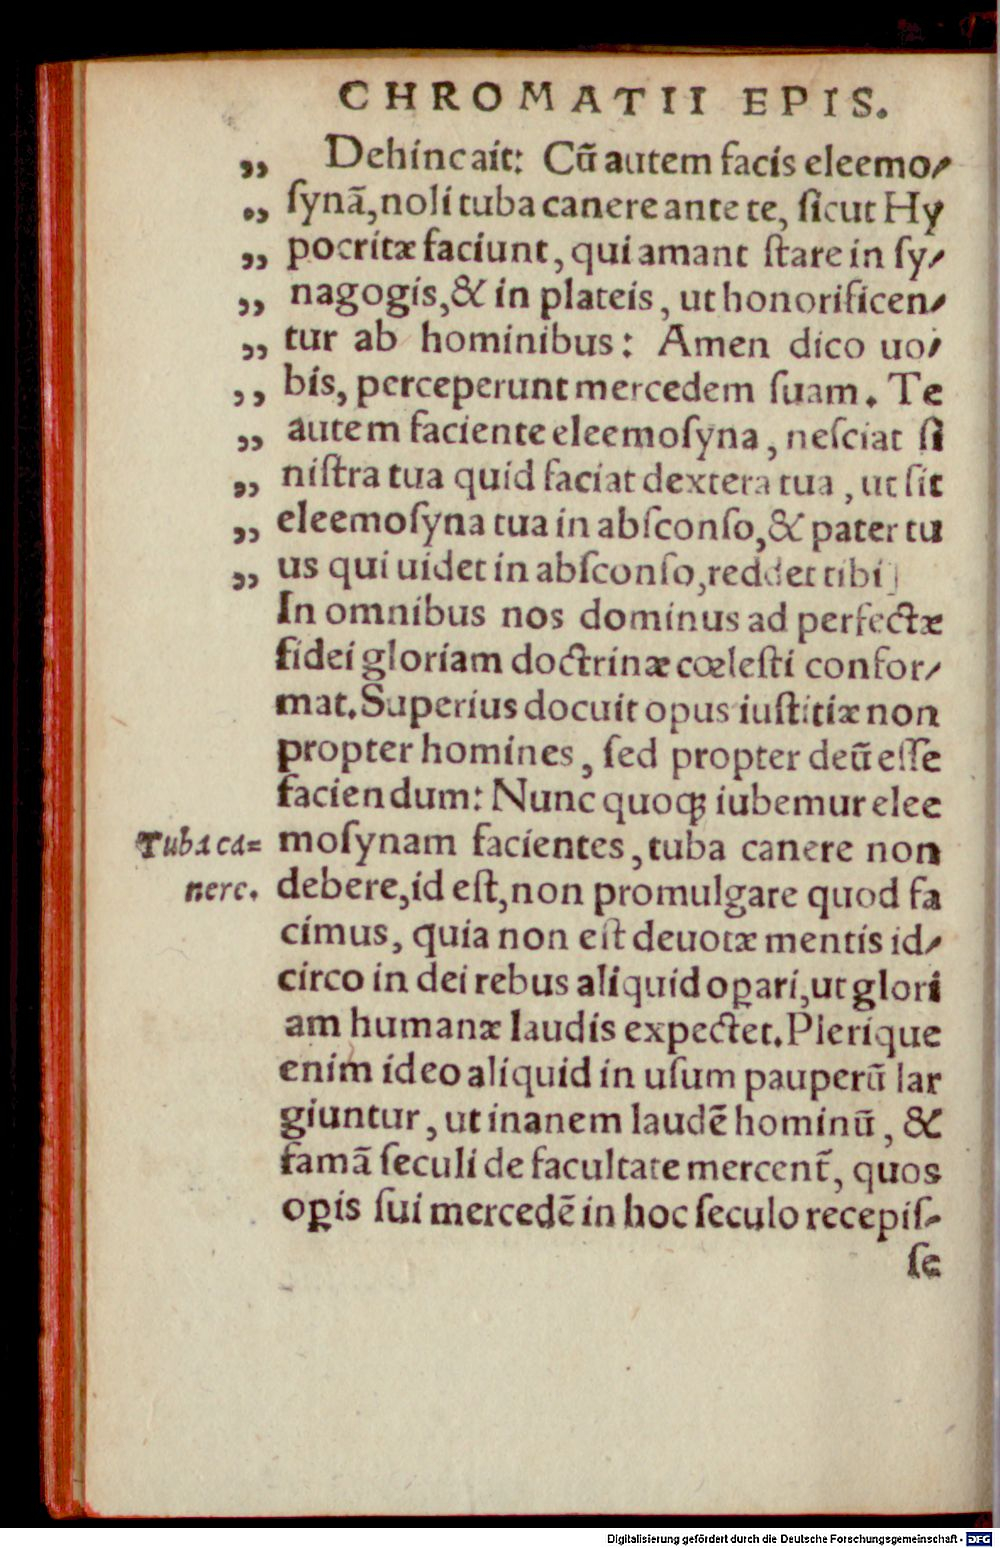 CHROMATII EPIS.
„ Dehinc ait: Cū autem facis eleemo-
„ ſynā, noli tuba canere ante te, ſicut Hy
„ pocritæ faciunt, qui amant ſtare in ſy-
„ nagogis, & in plateis, ut honorificen-
„ tur ab hominibus: Amen dico uo-
„ bis, perceperunt mercedem ſuam. Te
„ autem faciente eleemoſyna, neſciat ſi
„ niſtra tua quid faciat dextera tua, ut ſit
„ eleemoſyna tua in abſconſo, & pater tu
„ us qui uidet in abſconſo, reddet tibi
In omnibus nos dominus ad perfectæ
fidei gloriam doctrinæ cœleſti confor-
mat. Superius docuit opus iuſtitiæ non
propter homines, ſed propter deū eſſe
faciendum: Nunc quoqꝫ iubemur elee
Tuba ca= moſynam facientes, tuba canere non
nere. debere, id eſt, non promulgare quod fa
cimus, quia non eſt deuotæ mentis id-
circo in dei rebus aliquid oꝑari, ut glori
am humanæ laudis expectet. Plerique
enim ideo aliquid in uſum pauperū lar
giuntur, ut inanem laudē hominū, &
famā ſeculi de facultate mercent̄, quos
oꝑis ſui mercedē in hoc ſeculo recepiſ-
ſe
Digitalisierung gefördert durch die Deutsche Forschungsgemeinschaft - DFG